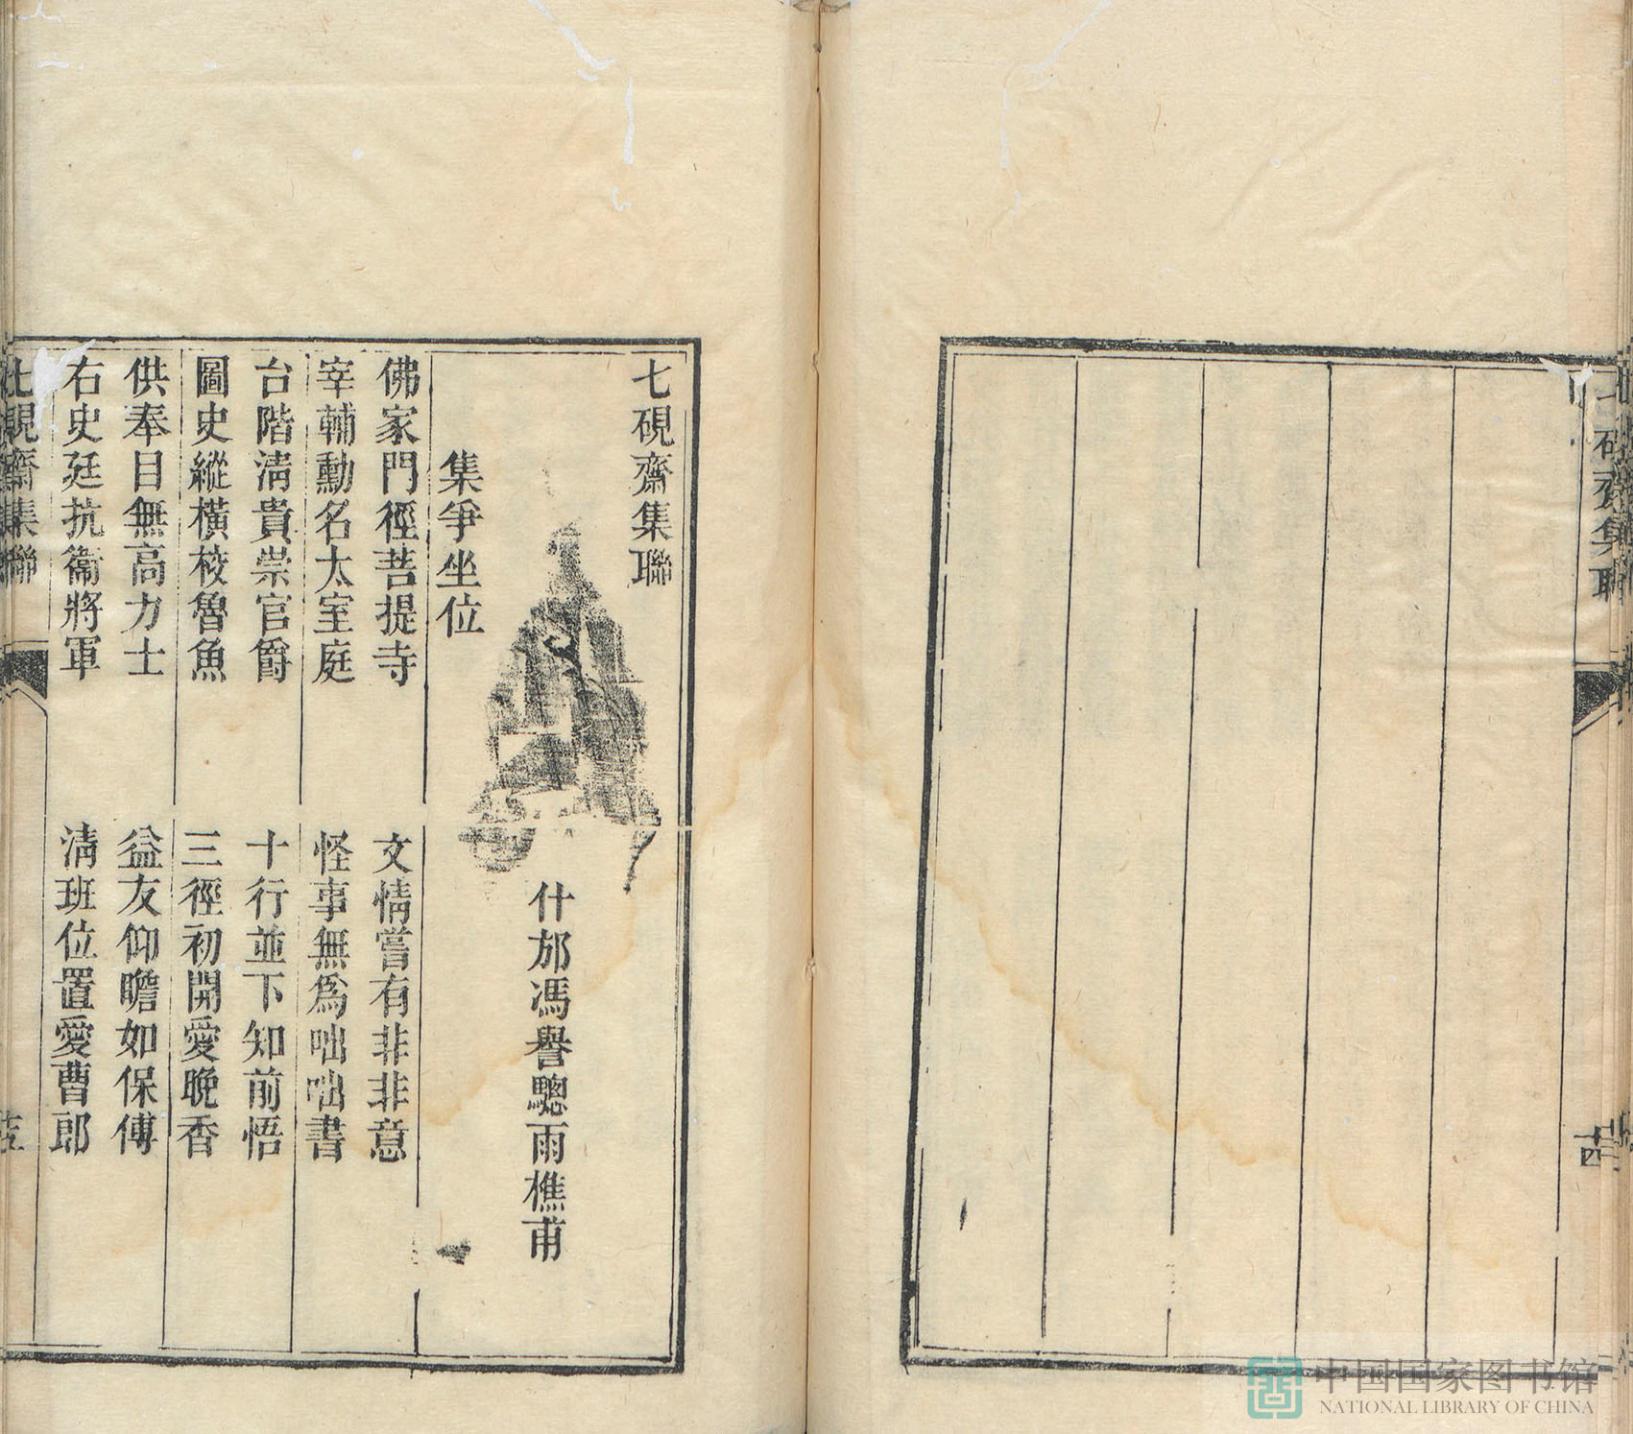 七硯齋集聯
十四
七硯齋集聯
什邡馮譽驄雨樵甫
集爭坐位
佛家門徑菩提寺
文情嘗有非非意
宰輔勳名太室庭
怪事無爲咄咄書
台階淸貴崇官爵
十行並下知前悟
圖史縱橫校魯魚
三徑初開愛晚香
供奉目無高力士
益友仰瞻如保傅
右史廷抗衞將軍
淸班位置愛曹郎
七硯齋集聯
中国国家图书馆
NATIONAL LIBRARY OF CHINA